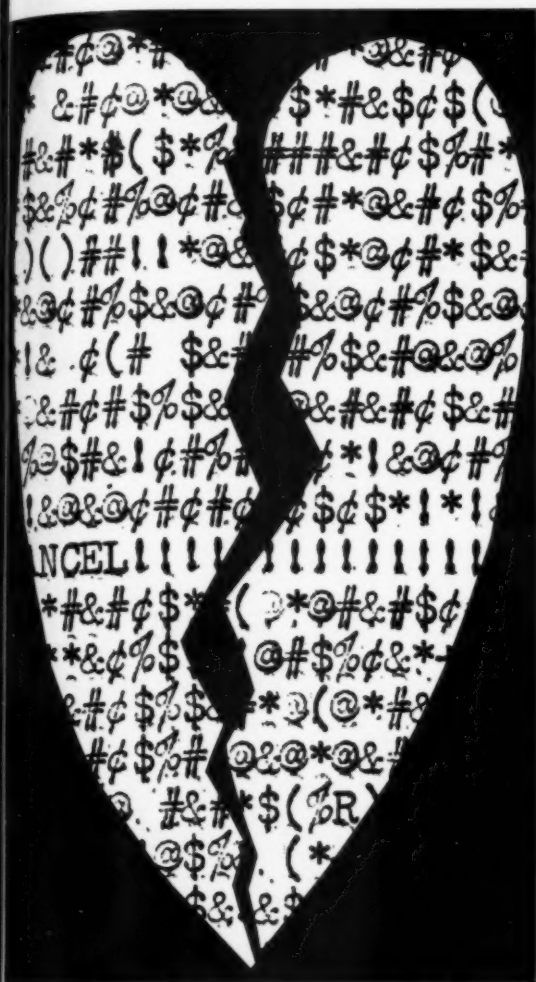 #¢@*# *@&#¢
* &#¢@*@& $*#&$¢$(
#&#*$($*% ###&#¢$%#*
$&%¢#%@¢#& $¢#*@&#¢$%
)()##!!*@& ¢$*@¢#*$&
&@¢#%$&@¢#% $&@¢#%$&@
!& ¢(# $&# #%$&#@&@%
&#¢#$%$& @&#&#¢$&#
%@$#&!¢#%# ¢*!&@¢#%
!&@&@¢#¢#¢ ¢$¢$*!*!
NCEL!!!! !!!!!!!!!
*#&#¢$* (@*@#&#$¢
**&¢%$ @#$%¢&*
&#¢$%$& *@(@*#&
#¢$%# @&@*@&#
@ #&#*$(%R)
@$% (*
$& &$